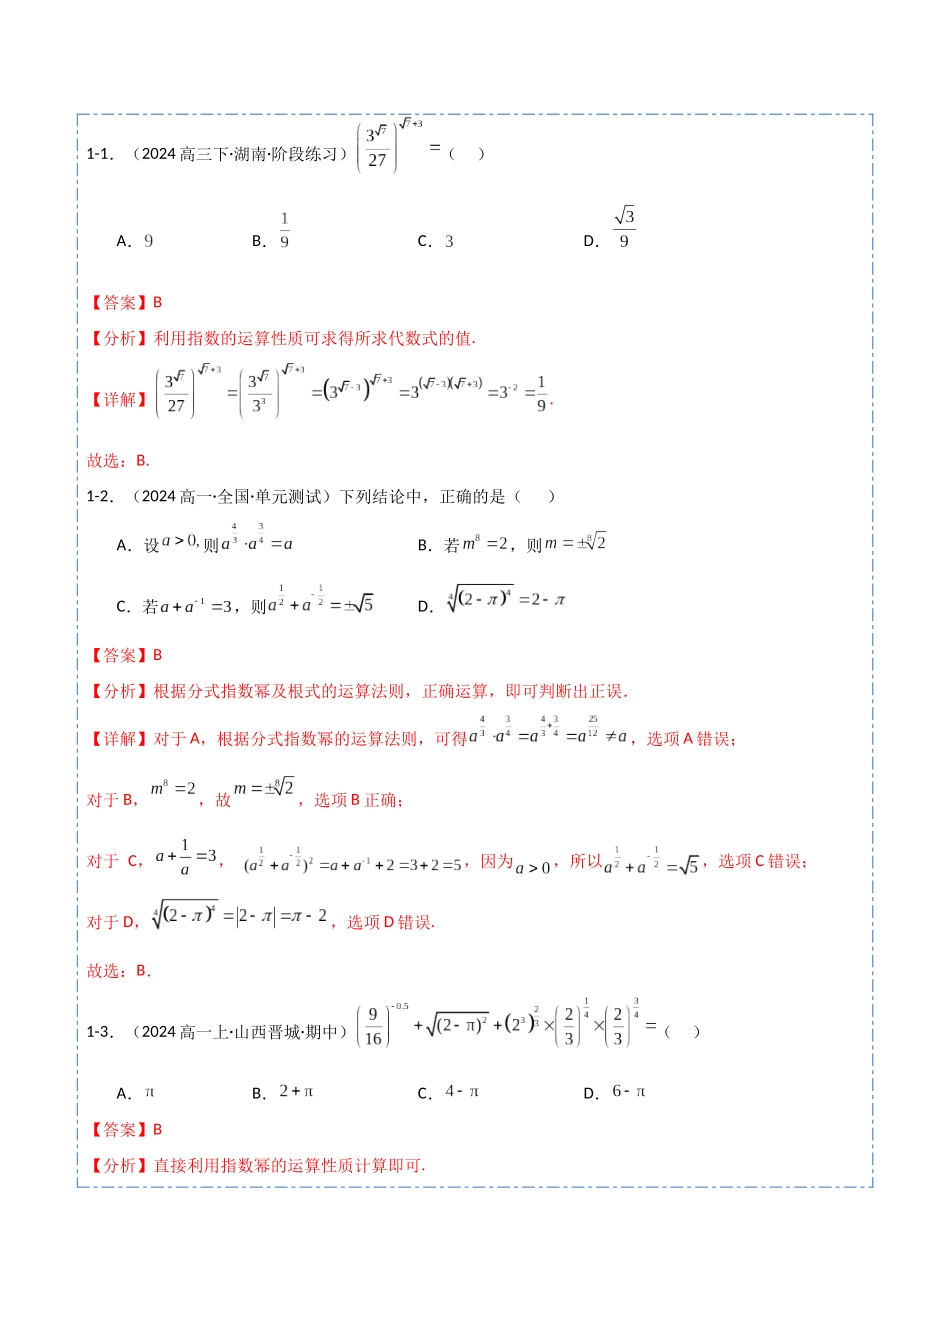 1-1．（2024高三下·湖南·阶段练习）$\left(\frac{3^{\sqrt{7}}}{27}\right)^{\sqrt{7}+3}=$（　）
A．9　B．$\frac{1}{9}$　C．3　D．$\frac{\sqrt{3}}{9}$
【答案】B
【分析】利用指数的运算性质可求得所求代数式的值.
【详解】$\left(\frac{3^{\sqrt{7}}}{27}\right)^{\sqrt{7}+3}=\left(\frac{3^{\sqrt{7}}}{3^{3}}\right)^{\sqrt{7}+3}=\left(3^{\sqrt{7}-3}\right)^{\sqrt{7}+3}=3^{(\sqrt{7}-3)(\sqrt{7}+3)}=3^{-2}=\frac{1}{9}$.
故选：B.
1-2．（2024高一·全国·单元测试）下列结论中，正确的是（　）
A．设$a>0,$则$a^{\frac{4}{3}}\cdot a^{\frac{3}{4}}=a$　B．若$m^{8}=2$，则$m=\pm\sqrt[8]{2}$
C．若$a+a^{-1}=3$，则$a^{\frac{1}{2}}+a^{-\frac{1}{2}}=\pm\sqrt{5}$　D．$\sqrt[4]{(2-\pi)^{4}}=2-\pi$
【答案】B
【分析】根据分式指数幂及根式的运算法则，正确运算，即可判断出正误．
【详解】对于A，根据分式指数幂的运算法则，可得$a^{\frac{4}{3}}\cdot a^{\frac{3}{4}}=a^{\frac{4}{3}+\frac{3}{4}}=a^{\frac{25}{12}}\neq a$，选项A错误；
对于B，$m^{8}=2$，故$m=\pm\sqrt[8]{2}$，选项B正确；
对于 C，$a+\frac{1}{a}=3$，$(a^{\frac{1}{2}}+a^{-\frac{1}{2}})^{2}=a+a^{-1}+2=3+2=5$，因为$a>0$，所以$a^{\frac{1}{2}}+a^{-\frac{1}{2}}=\sqrt{5}$，选项C错误；
对于D，$\sqrt[4]{(2-\pi)^{4}}=|2-\pi|=\pi-2$，选项D错误.
故选：B．
1-3．（2024高一上·山西晋城·期中）$\left(\frac{9}{16}\right)^{-0.5}+\sqrt{(2-\pi)^{2}}+\left(2^{3}\right)^{\frac{2}{3}}\times\left(\frac{2}{3}\right)^{\frac{1}{4}}\times\left(\frac{2}{3}\right)^{\frac{3}{4}}=$（　）
A．π　B．2+π　C．4-π　D．6-π
【答案】B
【分析】直接利用指数幂的运算性质计算即可.